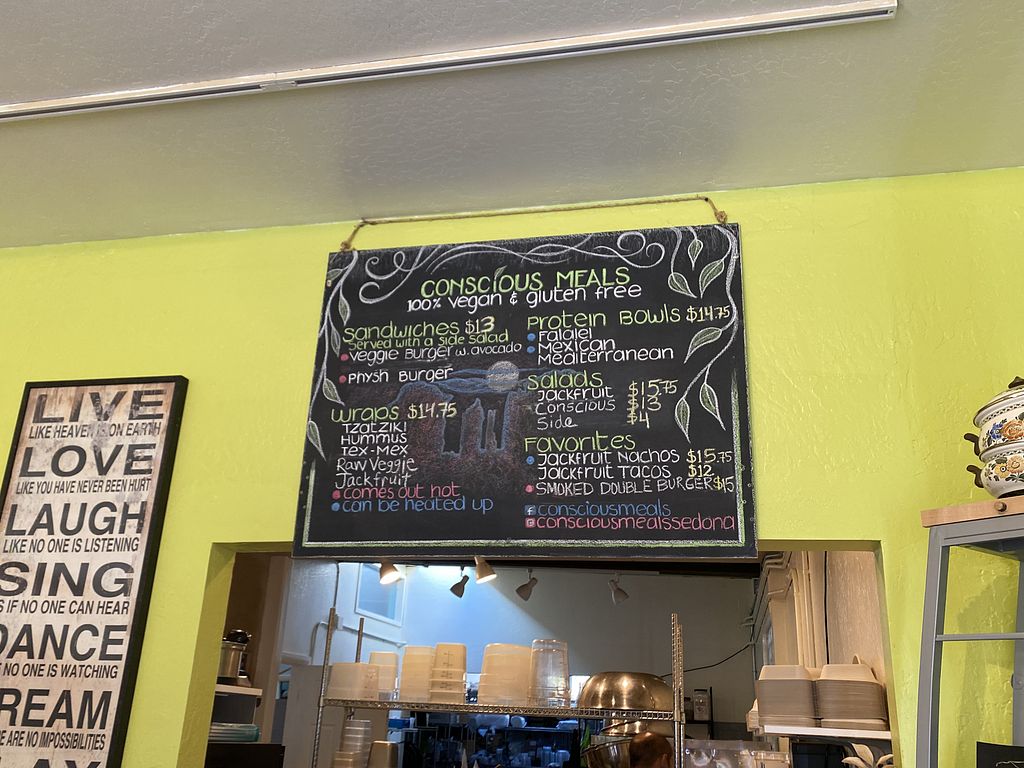 CONSCIOUS MEALS
100% vegan & gluten free
Sandwiches $13
Served with a side salad
Veggie Burger w. avocado
Physh Burger
Wraps $14.75
Tzatziki
Hummus
Tex-Mex
Raw Veggie
Jackfruit
comes out hot
can be heated up
Protein Bowls $14.75
Falafel
Mexican
Mediterranean
Salads
Jackfruit $15.75
Conscious $13
Side $4
Favorites
Jackfruit Nachos $15.75
Jackfruit Tacos $12
SMOKED DOUBLE BURGER $15
consciousmeals
consciousmealssedona
LIVE
LIKE HEAVEN IS ON EARTH
LOVE
LIKE YOU HAVE NEVER BEEN HURT
LAUGH
LIKE NO ONE IS LISTENING
SING
S IF NO ONE CAN HEAR
DANCE
NO ONE IS WATCHING
REAM
E ARE NO IMPOSSIBILITIES